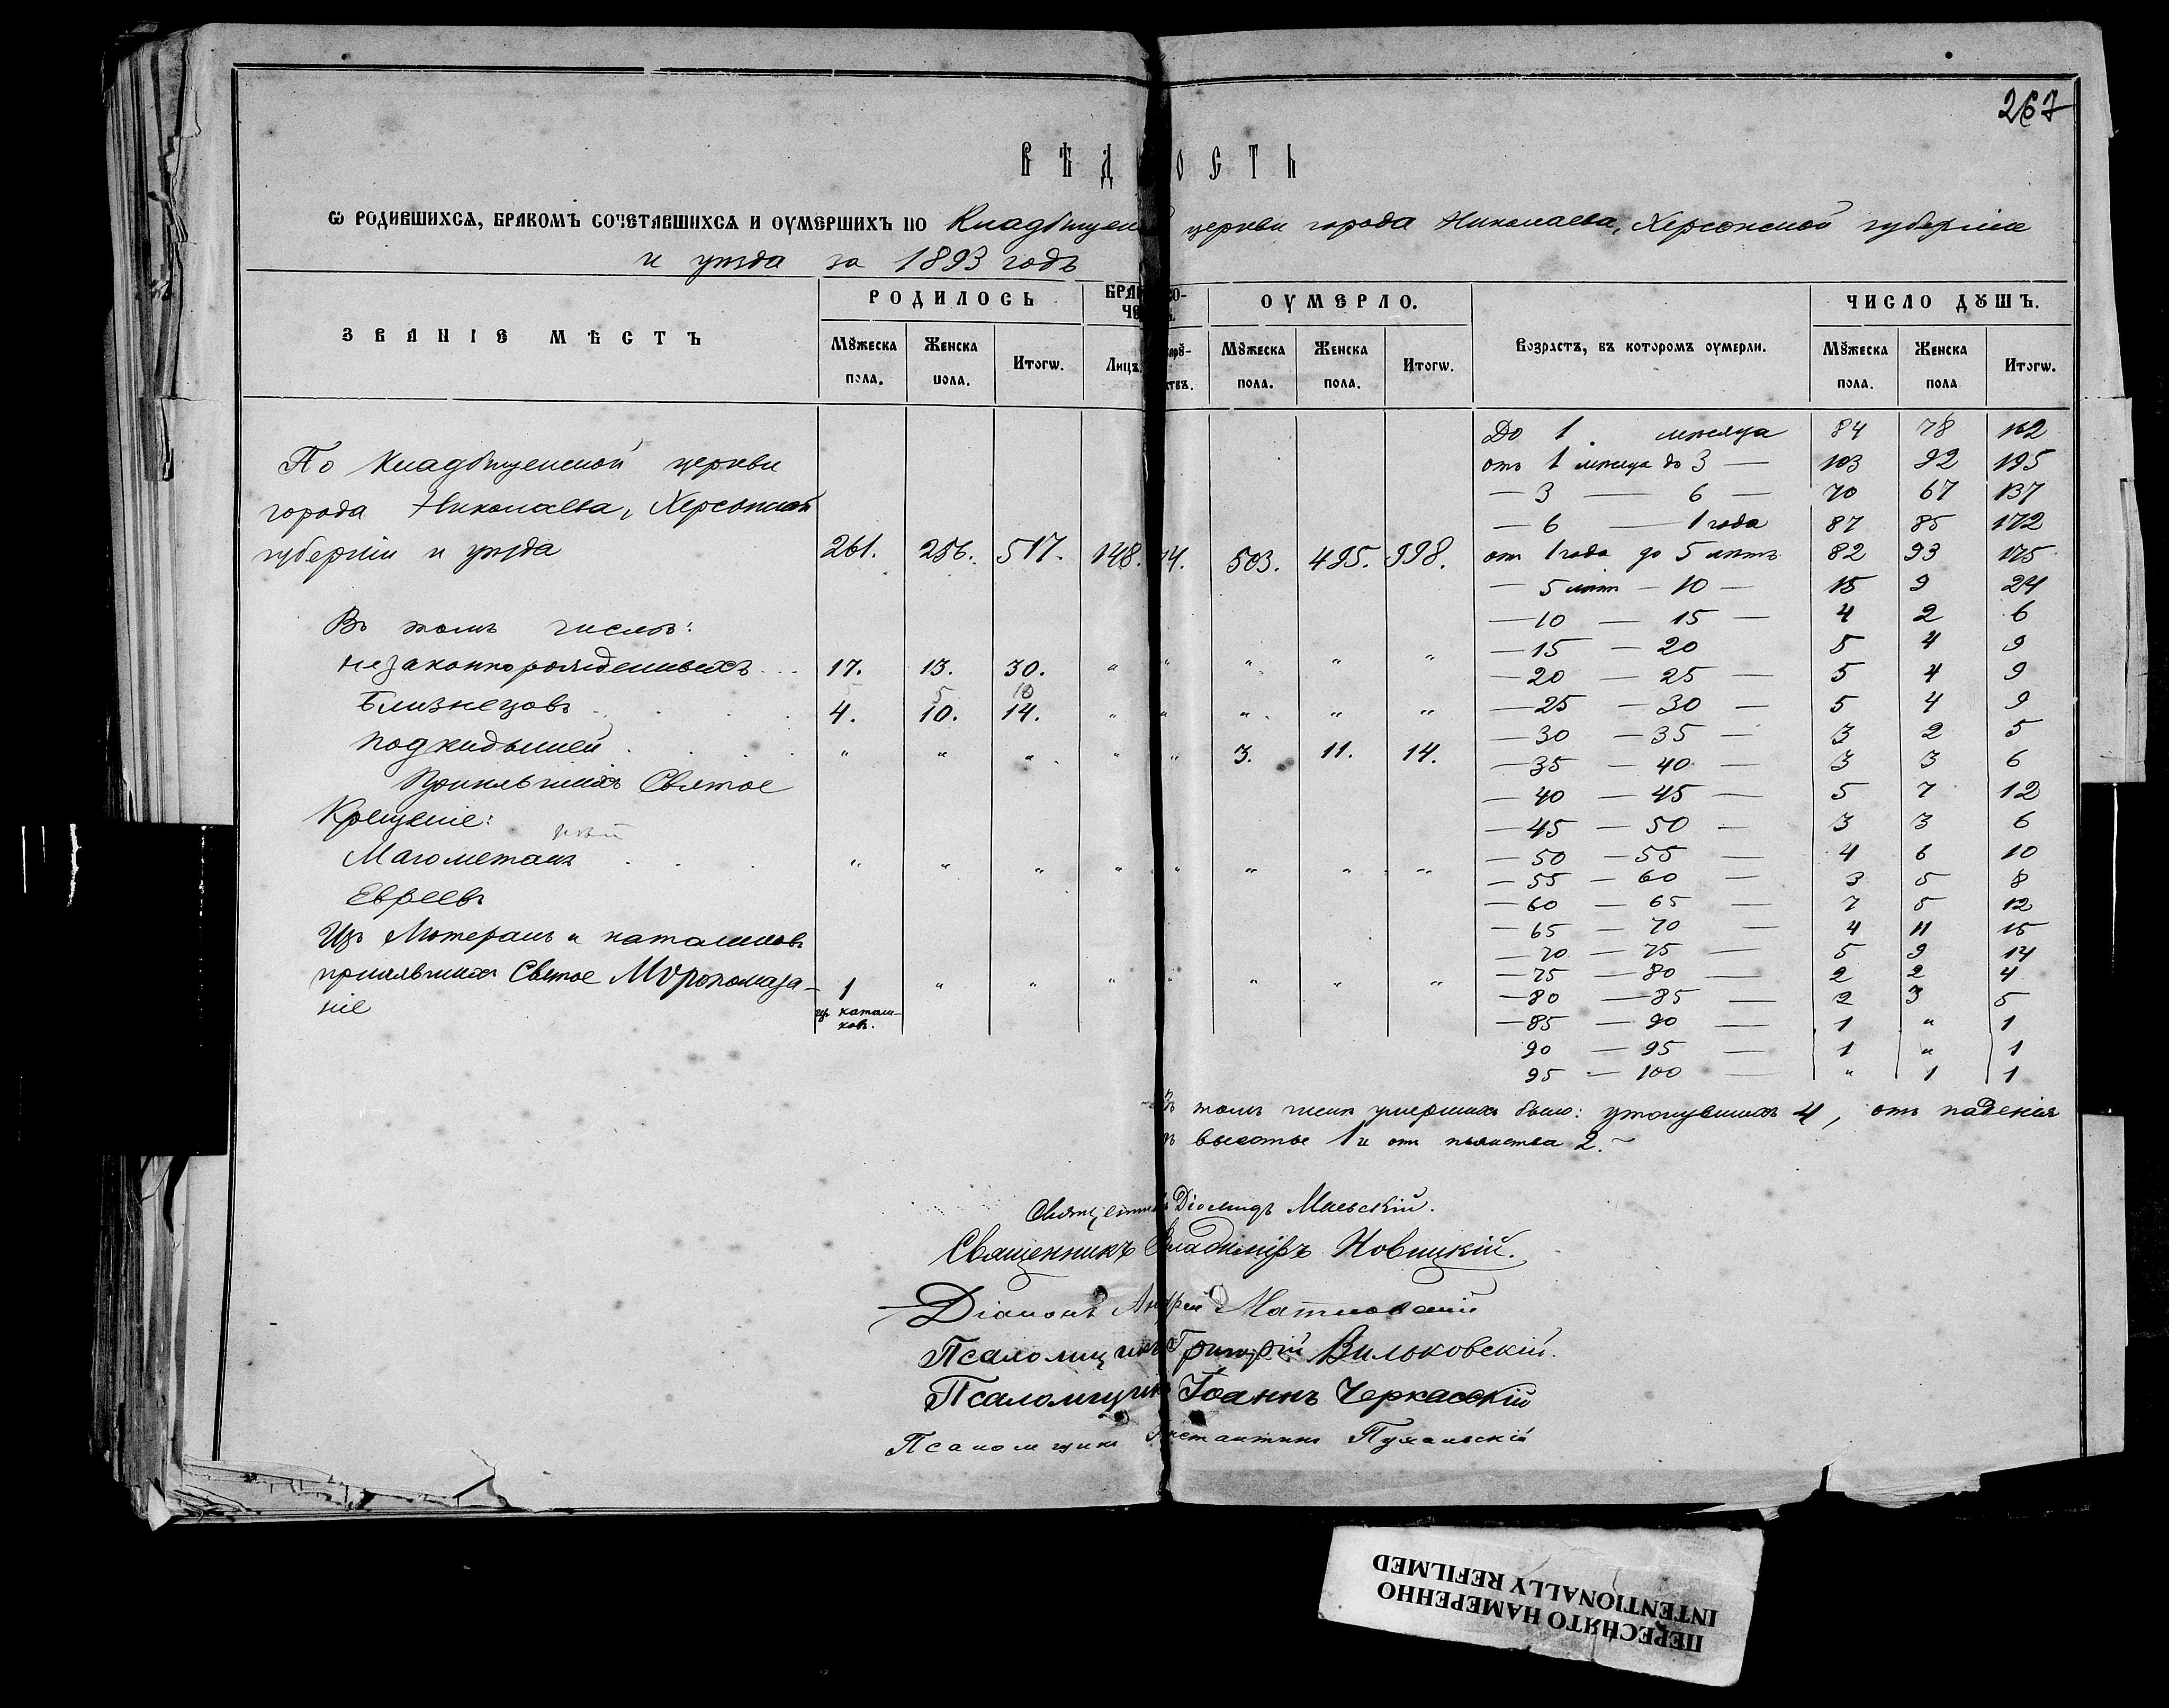 267
ВѢД ОСТЬ
Ѡ РОДИВШИХСѦ, БРАКОМЪ СОЧЕТАВШИХСѦ И ОУМЕРШИХЪ ПО Кладбищен церкви города Николаева, Херсонской губерніи
и уѣзда за 1893 годъ
ЗВАНІЕ МѢСТЪ
РОДИЛОСЬ
ОУМЕРЛО.
Возрастъ, въ которомъ оумерли.
ЧИСЛО ДꙊШЪ.
Мꙋжеска пола. Женска пола. Итогѡ. Лицъ. Мꙋжеска пола. Женска пола. Итогѡ. Мꙋжеска пола. Женска пола Итогѡ.
По Кладбищенской церкви
города Николаева, Херсонской
губерніи и уѣзда 261. 256. 517. 148. 74. 503. 495. 998.
Въ томъ числѣ:
незаконнорожденныхъ 17. 13. 30. " " " " "
5 5 10
Близнецовъ 4. 10. 14. " " " " "
подкидышей " " " " " 3. 11. 14.
Принявшихъ Святое
Крещеніе:
Магометанъ " " " " " " " "
Евреевъ
Изъ Лютеранъ и католиковъ
принявшихъ Святое Мѵропомаза-
ніе 1 " " " " " " "
изъ католи-
ковъ.
До 1 мѣсяца 84 78 162
отъ 1 мѣсяца до 3 — 103 92 195
— 3 — 6 — 70 67 137
— 6 — 1 года 87 85 172
отъ 1 года до 5 лѣтъ 82 93 175
— 5 лѣтъ — 10 — 15 9 24
— 10 — 15 — 4 2 6
— 15 — 20 5 4 9
— 20 — 25 — 5 4 9
— 25 — 30 — 5 4 9
— 30 — 35 — 3 2 5
— 35 — 40 — 3 3 6
— 40 — 45 — 5 7 12
— 45 — 50 — 3 3 6
— 50 — 55 — 4 6 10
— 55 — 60 — 3 5 8
— 60 — 65 — 7 5 12
— 65 — 70 — 4 11 15
— 70 — 75 — 5 9 14
— 75 — 80 — 2 2 4
— 80 — 85 — 2 3 5
— 85 — 90 — 1 " 1
90 — 95 — 1 " 1
95 — 100 — " 1 1
томъ числѣ умершихъ было: утонувшихъ 4, отъ паденія
высоты 1 и отъ пьянства 2. —
Священникъ Діомидъ Маевскій.
Священникъ Владиміръ Новицкій.
Діаконъ Андрей
Псаломщикъ Григорій Вильковскій.
Псаломщикъ Іоаннъ Черкасскій
Псаломщикъ
ПЕРЕСНЯТО НАМЕРЕННО
INTENTIONALLY REFILMED